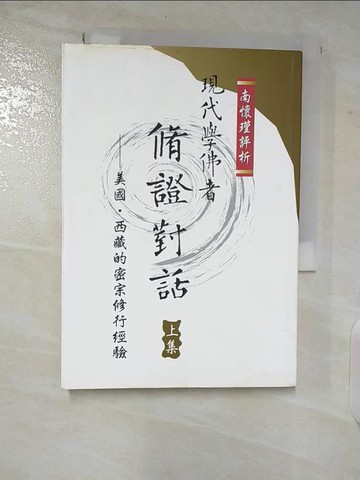 南懷瑾評析
現代學佛者
脩證對話
上集
——美國・西藏的密宗修行經驗